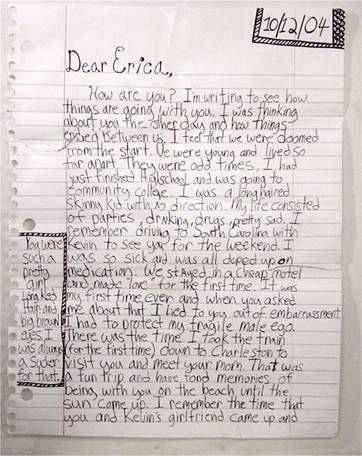 10/12/04
Dear Erica,
How are you? I'm writing to see how
things are going with you. I was thinking
about you the other day and how things
ended between us. I feel that we were doomed
from the start. We were young and lived so
far apart. They were odd times, I had
just finished Highschool and was going to
community college. I was a long haired
skinny kid with no direction. My life consisted
of parties, drinking, drugs, pretty sad. I
remember driving to South Carolina with
Kevin to see you for the weekend. I
was so sick and was all doped up on
medication. We stayed in a cheap motel
and made love for the first time. It was
my first time ever and when you asked
me about that I lied to you out of embarrassment.
I had to protect my fragile male ego.
There was the time I took the train
(for the first time) down to Charleston to
visit you and meet your mom. That was
a fun trip and have fond memories of
being with you on the beach until the
sun came up. I remember the time that
you and Kevin's girlfriend came up and
You were
such a
pretty
girl
Long Red
Hair and
big brown
eyes. I
was always
a sucker
for that.